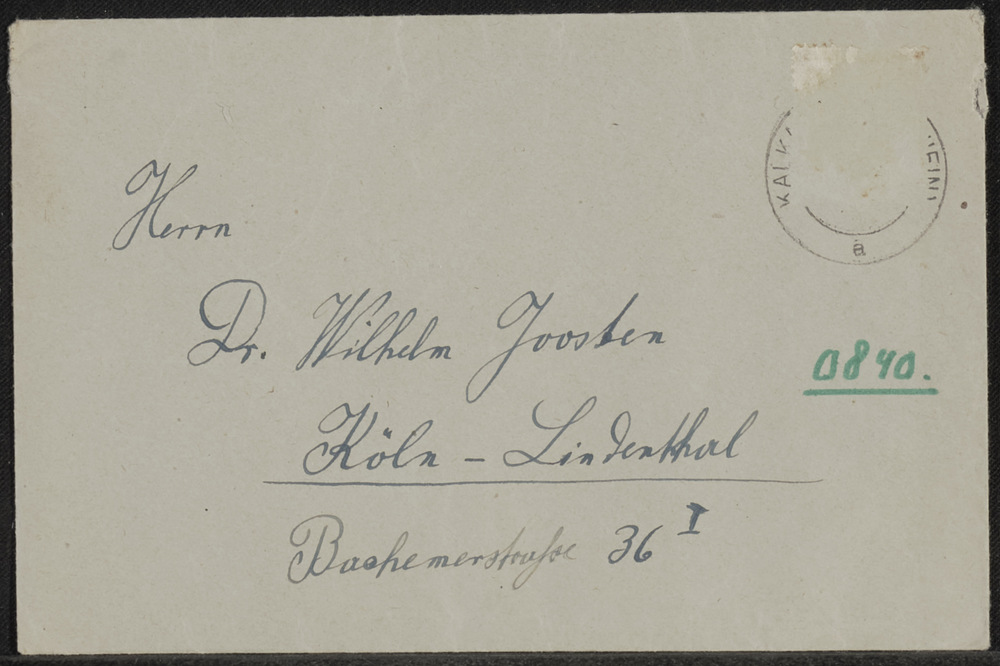 Herrn
Dr. Wilhelm Joosten
Köln - Lindenthal
Bachemerstraße 36 I
0840.
a